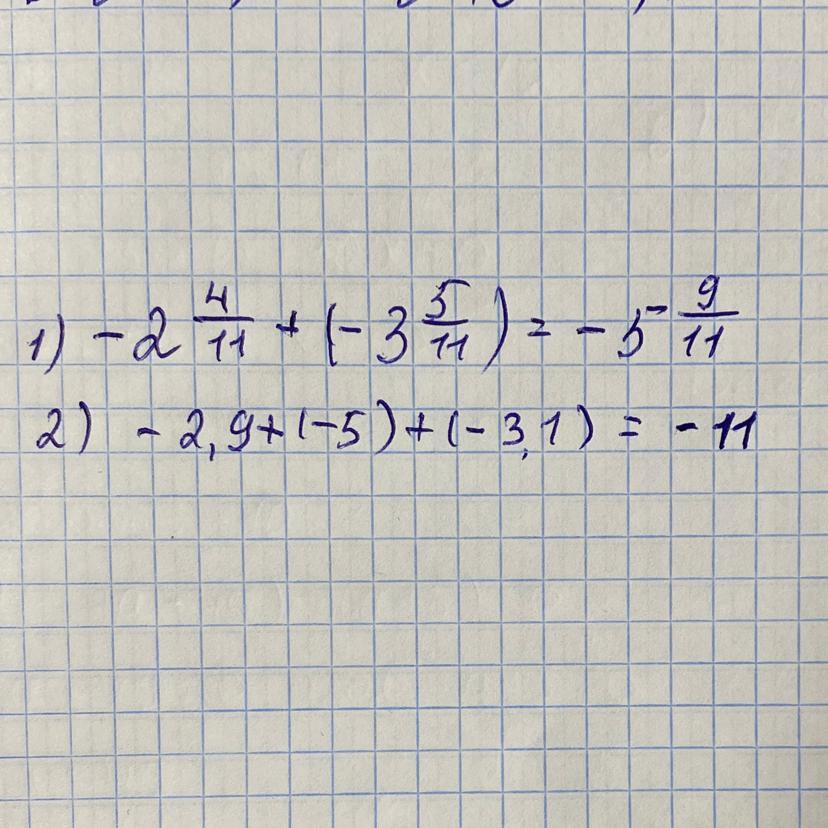 1) -2 4/11 + (-3 5/11) = -5 9/11
2) -2,9+(-5)+(-3,1) = -11